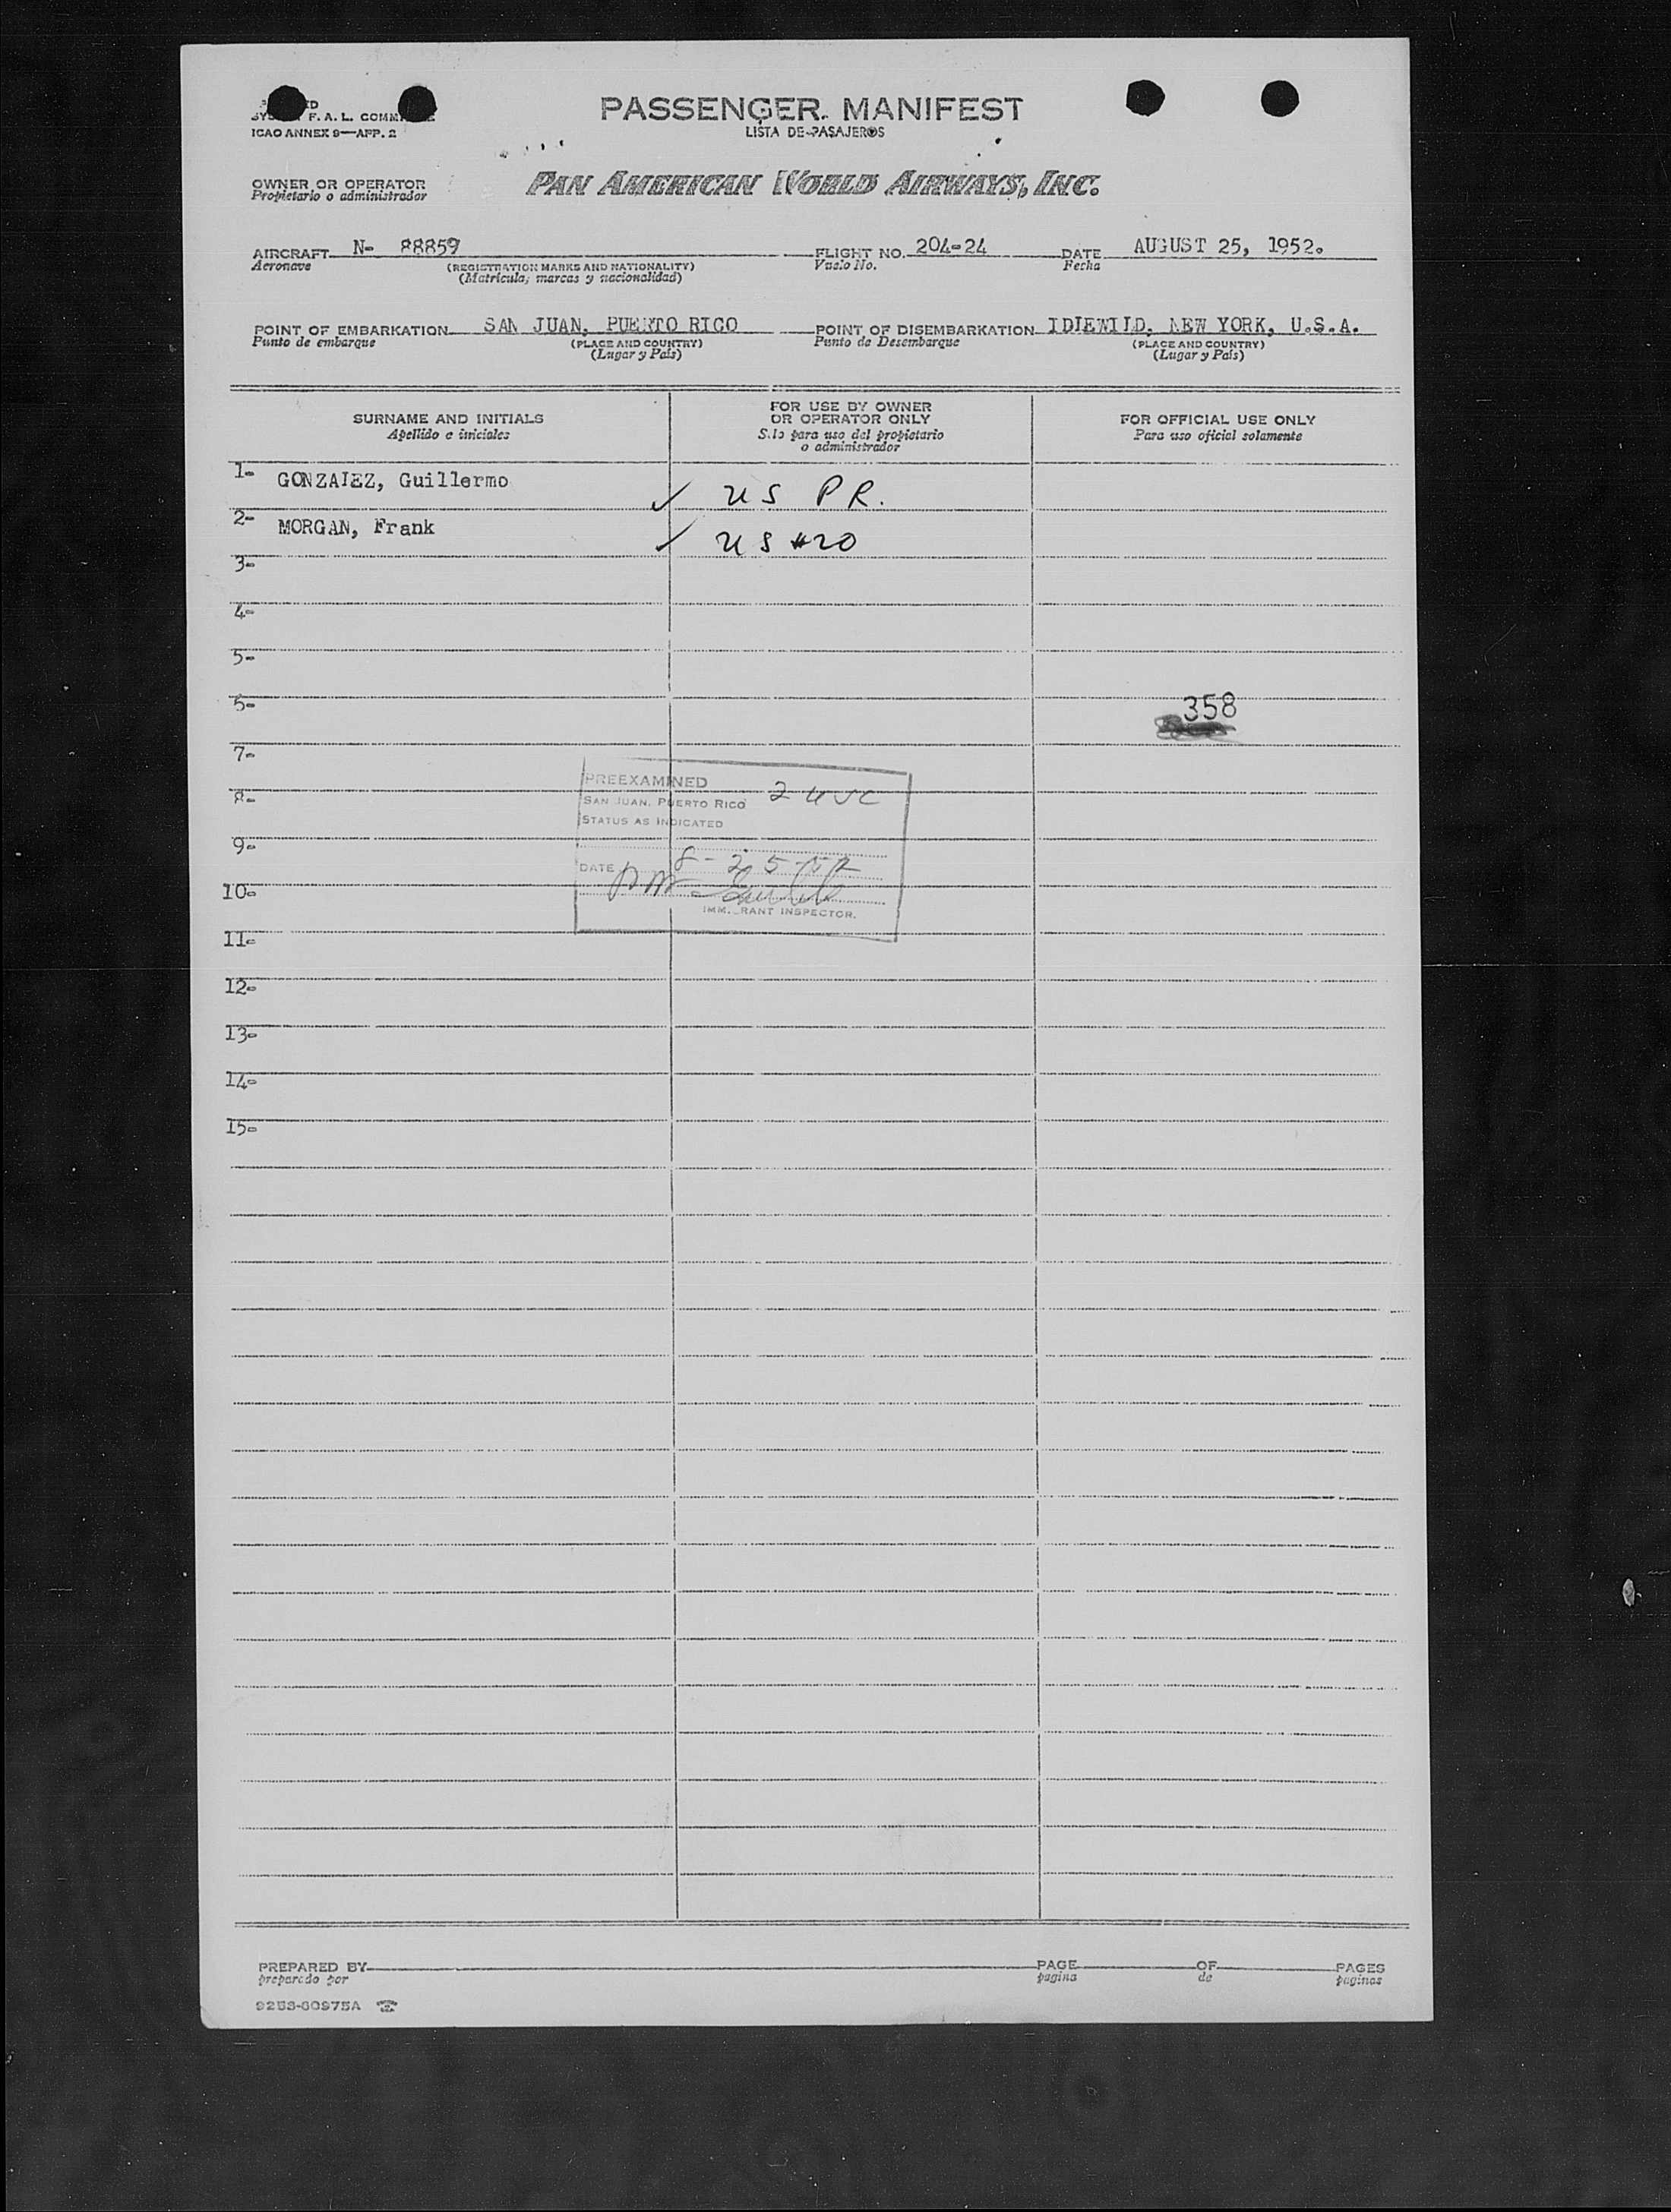 F. A. L. COMM
ICAO ANNEX 9—APP. 2
PASSENGER MANIFEST
LISTA DE PASAJEROS
OWNER OR OPERATOR
Propietario o administrador
PAN AMERICAN WORLD AIRWAYS, INC.
AIRCRAFT N- 88859 FLIGHT NO. 204-24 DATE AUGUST 25, 1952.
Aeronave (REGISTRATION MARKS AND NATIONALITY) Vuelo No. Fecha
(Matrícula, marcas y nacionalidad)
POINT OF EMBARKATION SAN JUAN, PUERTO RICO POINT OF DISEMBARKATION IDLEWILD, NEW YORK, U.S.A.
Punto de embarque (PLACE AND COUNTRY) Punto de Desembarque (PLACE AND COUNTRY)
(Lugar y País) (Lugar y País)
SURNAME AND INITIALS FOR USE BY OWNER OR OPERATOR ONLY FOR OFFICIAL USE ONLY
Apellido e iniciales S.lo para uso del propietario o administrador Para uso oficial solamente
1- GONZALEZ, Guillermo ✓ US PR.
2- MORGAN, Frank ✓ US #20
3-
4-
5-
6- 358
7-
PREEXAMINED
8- SAN JUAN, PUERTO RICO 2 USC
STATUS AS INDICATED
9-
DATE 8-25-52
10-
IMM. RANT INSPECTOR.
11-
12-
13-
14-
15-
PREPARED BY PAGE OF PAGES
preparado por pagina de paginas
9253-60975A